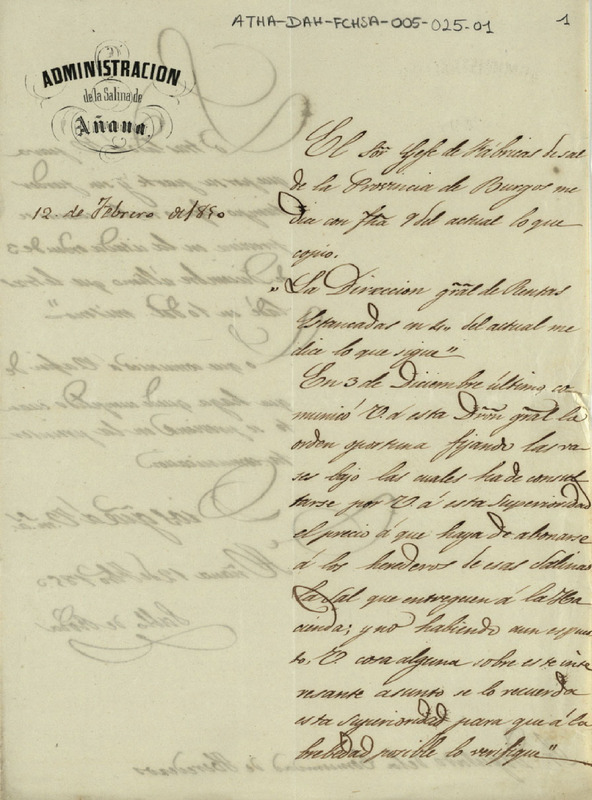 ATHA-DAH-FCHSA-005-025-01
1
ADMINISTRACION
de la Salina de
Añana.
12 de Febrero de 1850
El Sor Gefe de Fábricas de sal
de la Provincia de Burgos me
dice con fha 9 del actual lo que
copio.
"La Direccion gral de Rentas
Estancadas en 4 del actual me
dice lo que sigue"
En 3 de Diciembre último, co
municó V. á esta Dron gral la
orden oportuna fijando las va
ses bajo las cuales ha de consul
tarse por V. á esta Superioridad
el precio á que haya de abonarse
á los herederos de esas Salinas
la sal que entreguen á la Ha
cienda; y no habiendo aun espues
to V. cosa alguna sobre este inte
resante asunto se lo recuerda
esta Superioridad para que á la
brebedad posible lo verifique"